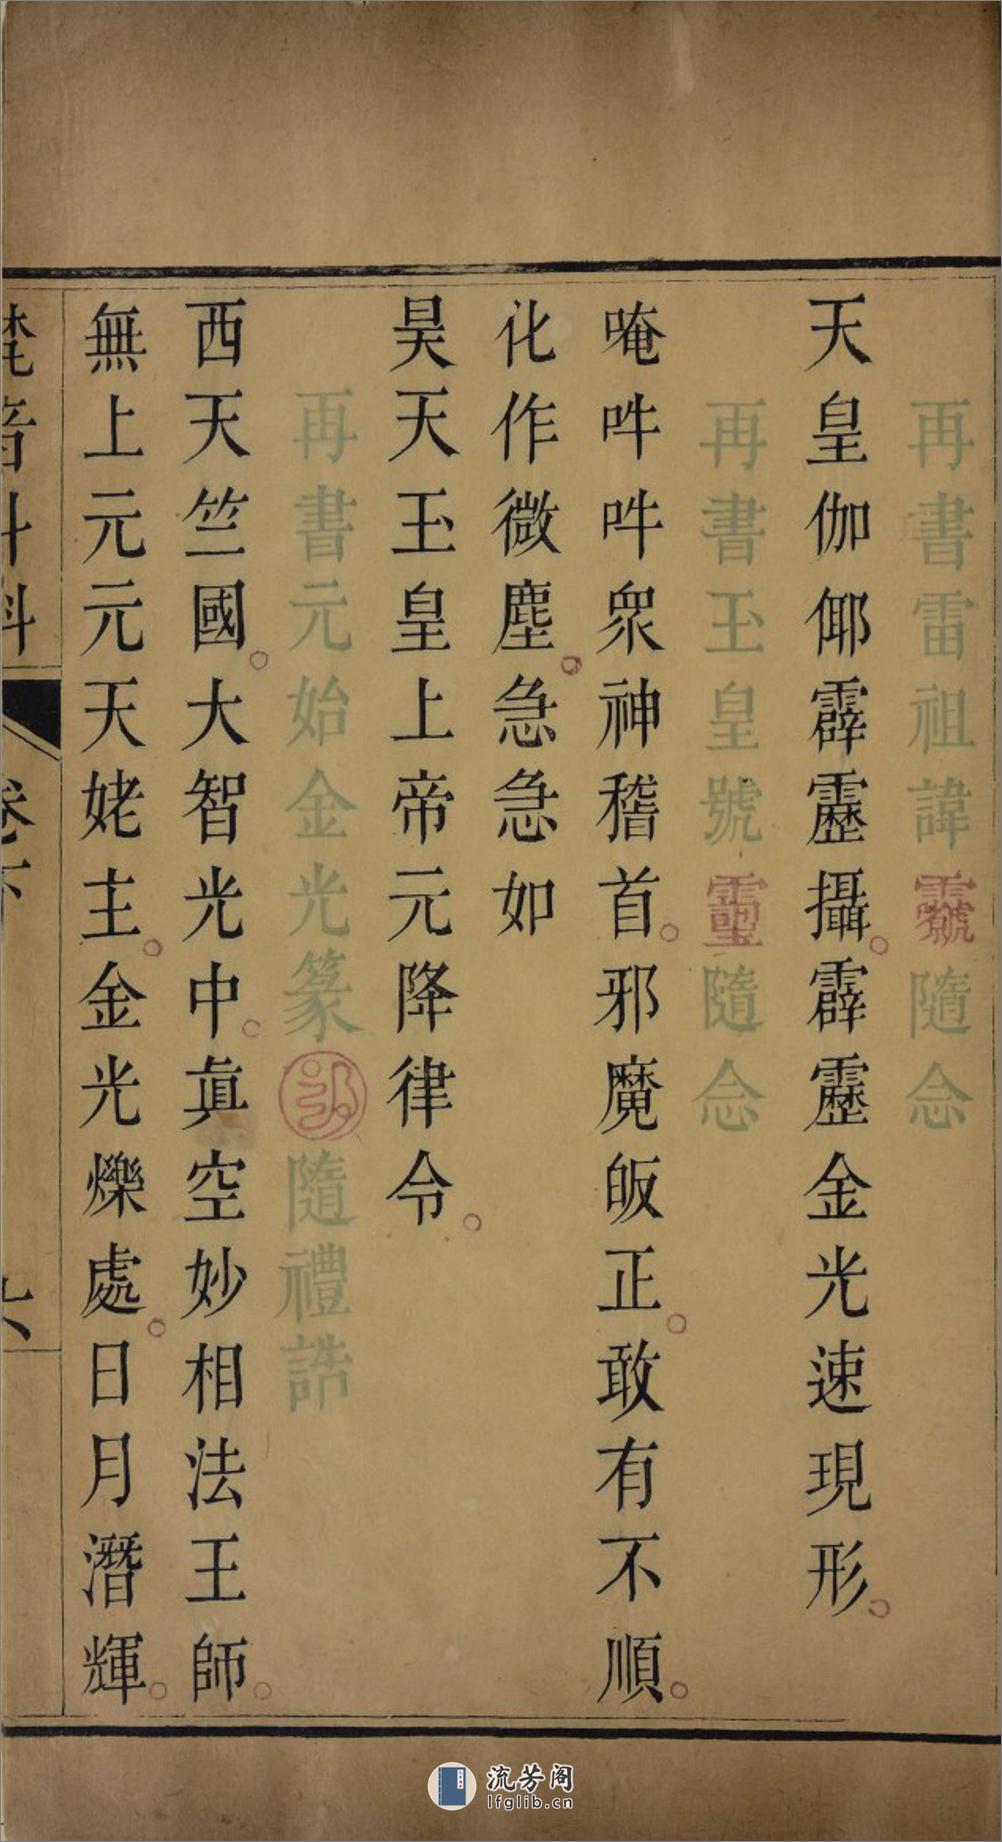 再書雷祖諱隨念
天皇伽倻霹靂攝霹靂金光速現形
再書玉皇號隨念
唵吽吽眾神稽首邪魔皈正敢有不順
化作微塵急急如
昊天玉皇上帝元降律令
再書元始金光篆隨禮誥
西天竺國大智光中眞空妙相法王師
無上元元天姥主金光爍處日月潛輝
梵音斗科 卷下 六
流芳阁
lfglib.cn